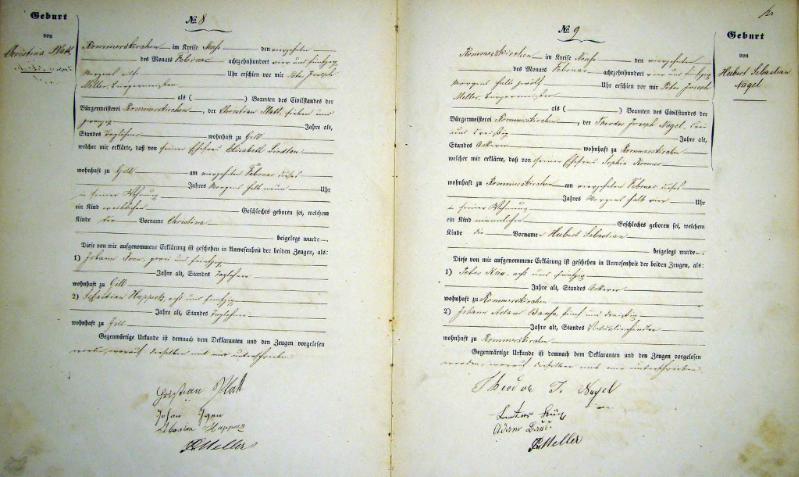 Geburt
von
Christina Plath
№ 8
Rommerskirchen im Kreise Neuß den vierzehnten
des Monats Februar achtzehnhundert vier und fünfzig
Morgens elf Uhr erschien vor mir Peter Joseph
Meller, Bürgermeister
als ( ) Beamten des Civilstandes der
Bürgermeisterei Rommerskirchen, der Christian Plath, sieben und
Jahre alt,
Standes Taglöhner wohnhaft zu Gill
welcher mir erklärte, daß von seiner Ehefrau Elisabeth
wohnhaft zu Gill am vierzehnten Februar dieses
Jahres Morgens halb neun Uhr
in seiner Wohnung
ein Kind weiblichen Geschlechts geboren sei, welchem
Kinde die Vorname Christina
beigelegt wurde
Diese von mir aufgenommene Erklärung ist geschehen in Anwesenheit der beiden Zeugen, als:
1) Johann und fünfzig
Jahre alt, Standes Taglöhner
wohnhaft zu Gill
2) Sebastian Huppertz, acht und
Jahre alt, Standes Taglöhner
wohnhaft zu Gill
Gegenwärtige Urkunde ist demnach dem Deklaranten und den Zeugen vorgelesen
worden, worauf dieselben mit mir unterschrieben
Christian Plath
Johan
Sebastian Huppertz
Meller
№ 9
Geburt
von
Hubert Sebastian
Nagel
Rommerskirchen im Kreise Neuß den vierzehnten
des Monats Februar achtzehnhundert vier und fünfzig
Morgens halb zwölf Uhr erschien vor mir Peter Joseph
Meller, Bürgermeister
als ( ) Beamten des Civilstandes der
Bürgermeisterei Rommerskirchen, der Theodor Joseph Nagel, drei
und dreißig Jahre alt,
Standes Ackerer wohnhaft zu Rommerskirchen
welcher mir erklärte, daß von seiner Ehefrau Sophia
wohnhaft zu Rommerskirchen am vierzehnten Februar dieses
Jahres Morgens halb vier Uhr
in seiner Wohnung
ein Kind männlichen Geschlechts geboren sei, welchem
Kinde die Vorname Hubert Sebastian
beigelegt wurde
Diese von mir aufgenommene Erklärung ist geschehen in Anwesenheit der beiden Zeugen, als:
1) Peter acht und fünfzig
Jahre alt, Standes Ackerer
wohnhaft zu Rommerskirchen
2) Johann Adam fünf und dreißig
Jahre alt, Standes
wohnhaft zu Rommerskirchen
Gegenwärtige Urkunde ist demnach dem Deklaranten und den Zeugen vorgelesen
worden, worauf dieselben mit mir unterschrieben
Theodor J. Nagel
Adam
Meller